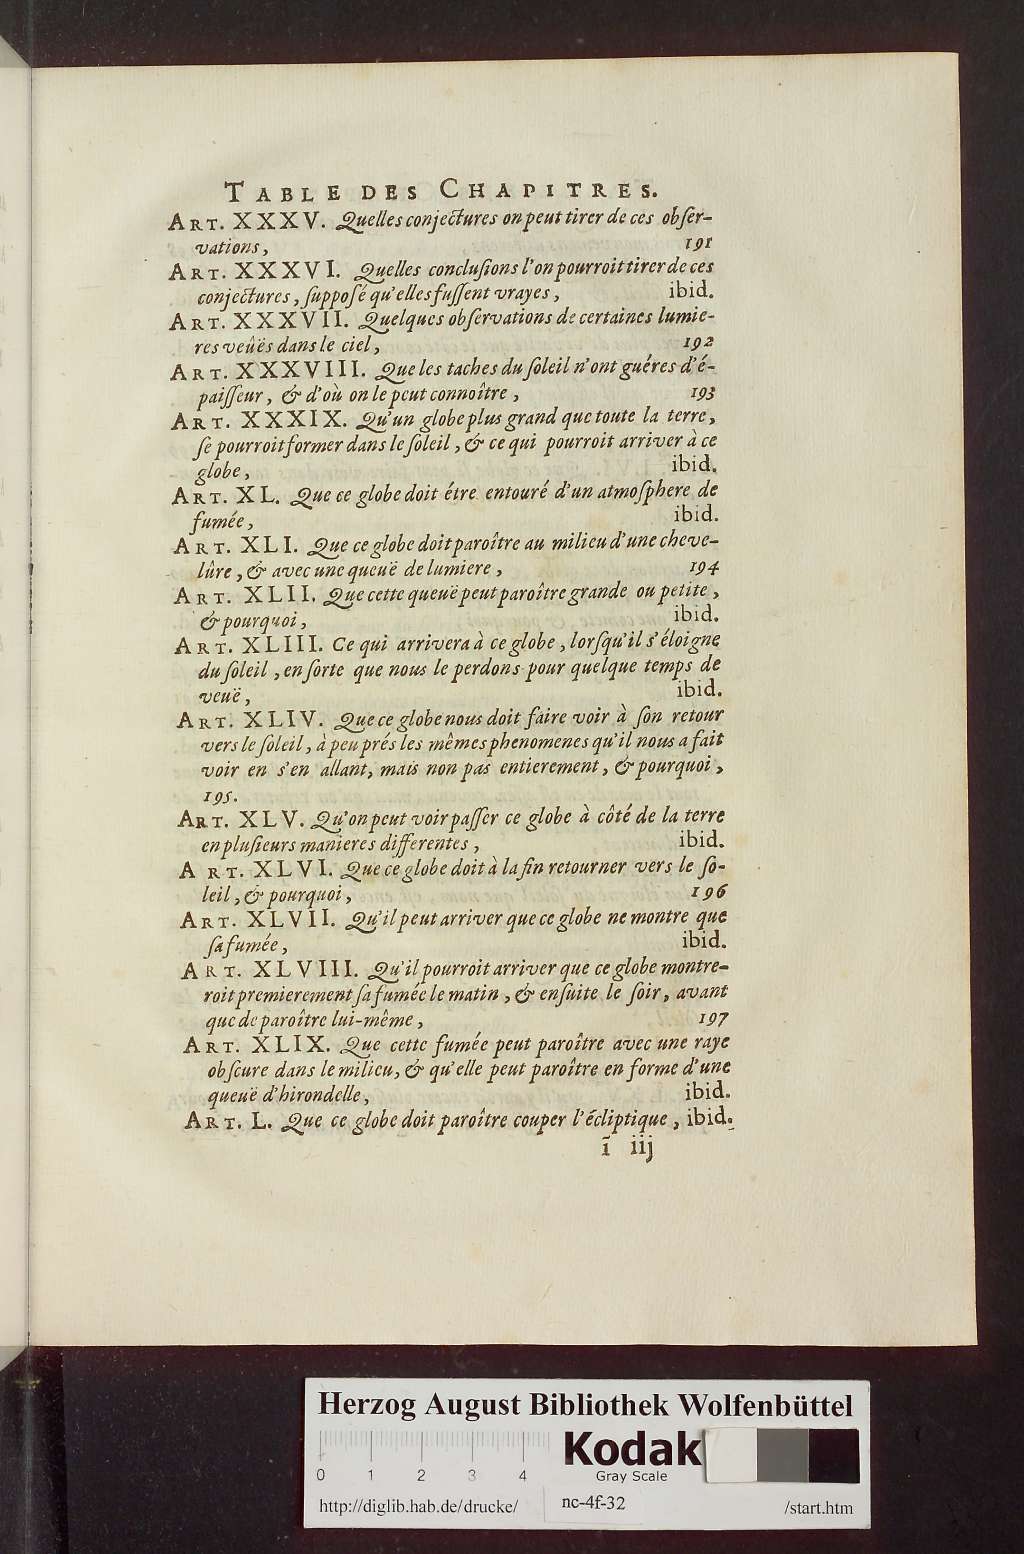 TABLE DES CHAPITRES.
ART. XXXV. Quelles conjectures on peut tirer de ces obſer-
vations, 191
ART. XXXVI. Quelles concluſions l'on pourroit tirer de ces
conjectures, ſuppoſé qu'elles fuſſent vrayes, ibid.
ART. XXXVII. Quelques obſervations de certaines lumie-
res veûës dans le ciel, 192
ART. XXXVIII. Que les taches du ſoleil n'ont guéres d'é-
paiſſeur, & d'où on le peut connoître, 193
ART. XXXIX. Qu'un globe plus grand que toute la terre,
ſe pourroit former dans le ſoleil, & ce qui pourroit arriver à ce
globe, ibid.
ART. XL. Que ce globe doit étre entouré d'un atmoſphere de
fumée, ibid.
ART. XLI. Que ce globe doit paroître au milieu d'une cheve-
lûre, & avec une queuë de lumiere, 194
ART. XLII. Que cette queuë peut paroître grande ou petite,
& pourquoi, ibid.
ART. XLIII. Ce qui arrivera à ce globe, lorſqu'il s'éloigne
du ſoleil, en ſorte que nous le perdons pour quelque temps de
veuë, ibid.
ART. XLIV. Que ce globe nous doit faire voir à ſon retour
vers le ſoleil, à peu prés les mêmes phenomenes qu'il nous a fait
voir en s'en allant, mais non pas entierement, & pourquoi,
195.
ART. XLV. Qu'on peut voir paſſer ce globe à côté de la terre
en pluſieurs manieres differentes, ibid.
ART. XLVI. Que ce globe doit à la fin retourner vers le ſo-
leil, & pourquoi, 196
ART. XLVII. Qu'il peut arriver que ce globe ne montre que
ſa fumée, ibid.
ART. XLVIII. Qu'il pourroit arriver que ce globe montre-
roit premierement ſa fumée le matin, & enſuite le ſoir, avant
que de paroître lui-même, 197
ART. XLIX. Que cette fumée peut paroître avec une raye
obſcure dans le milieu, & qu'elle peut paroître en forme d'une
queuë d'hirondelle, ibid.
ART. L. Que ce globe doit paroître couper l'écliptique, ibid.
ĩ iij
Herzog August Bibliothek Wolfenbüttel
Kodak
Gray Scale
0 1 2 3 4
http://diglib.hab.de/drucke/ nc-4f-32 /start.htm